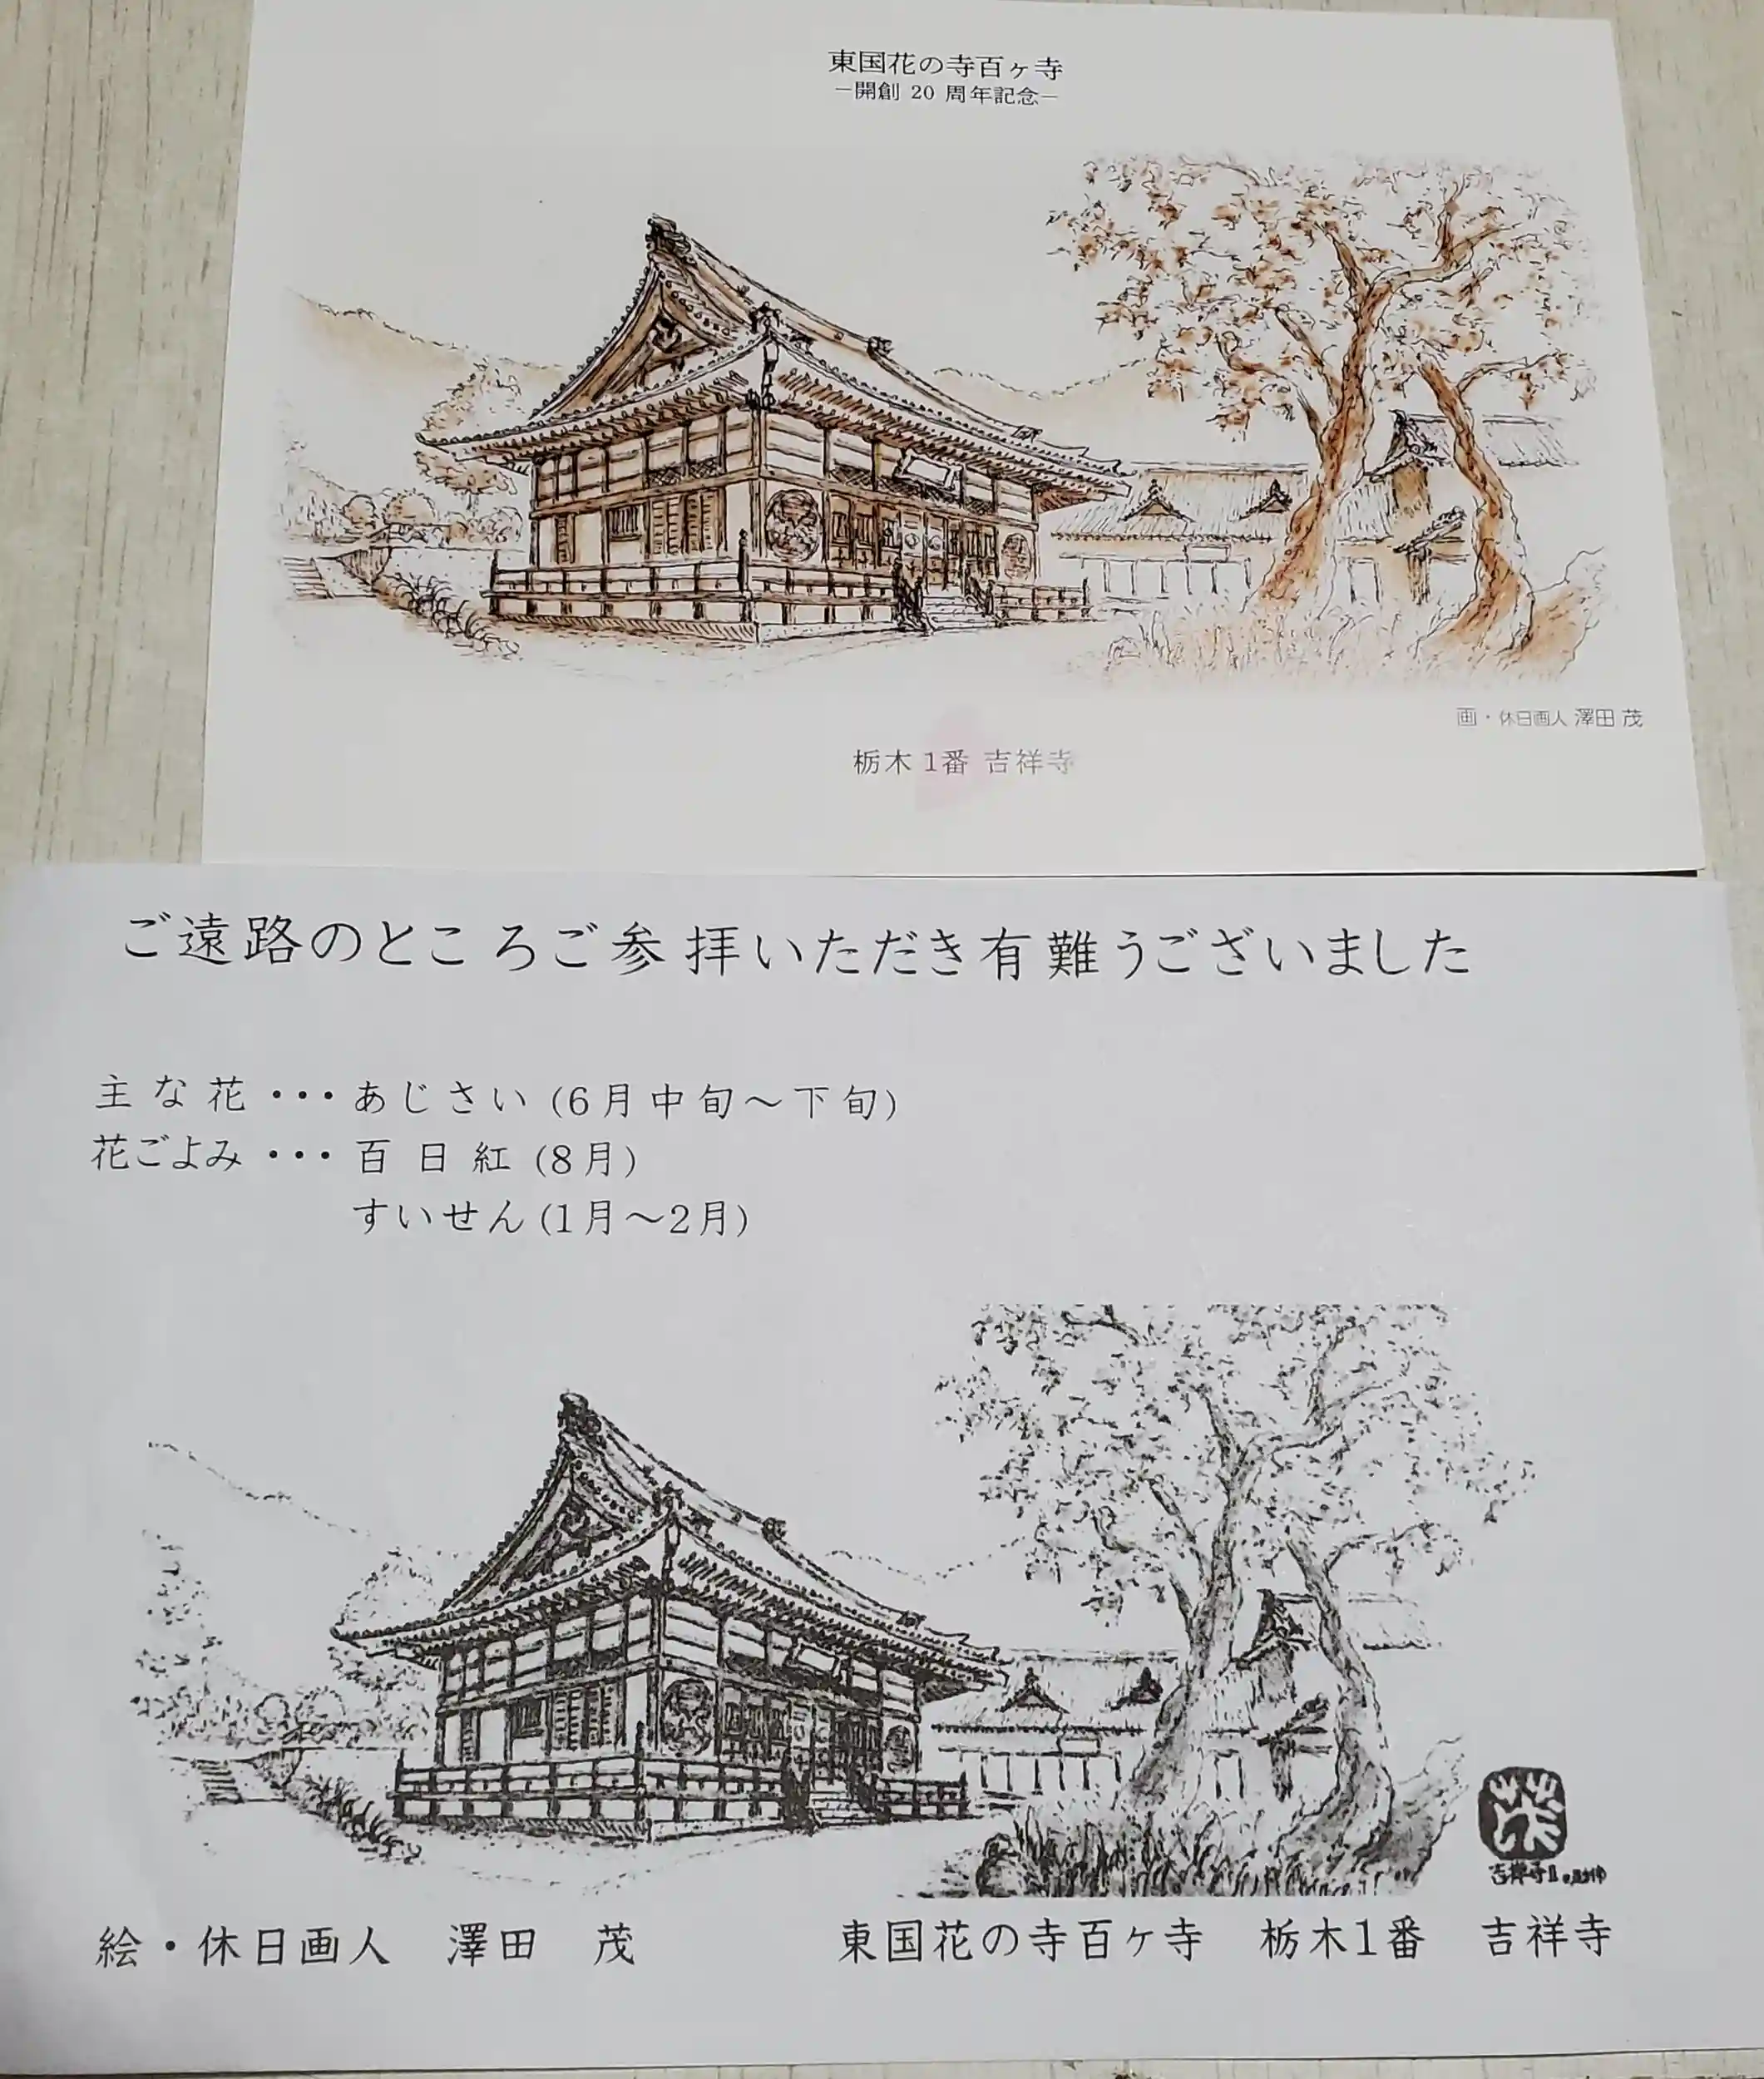 東国花の寺百ヶ寺
−開創 20 周年記念−
画・休日画人 澤田 茂
栃木 1番 吉祥寺
ご遠路のところご参拝いただき有難うございました
主な花・・・あじさい(6月中旬〜下旬)
花ごよみ・・・百日紅(8月)
すいせん(1月〜2月)
茂
絵・休日画人 澤田 茂
東国花の寺百ヶ寺 栃木1番 吉祥寺